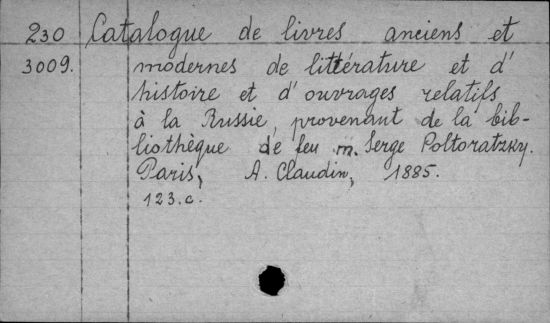 230 Catalogue de livres anciens et
3009. modernes de littérature et d'
histoire et d'ouvrages relatifs
à la Russie, provenant de la bib-
liothèque de feu m. Serge Poltoratzky.
Paris, A. Claudin, 1885.
123.c.